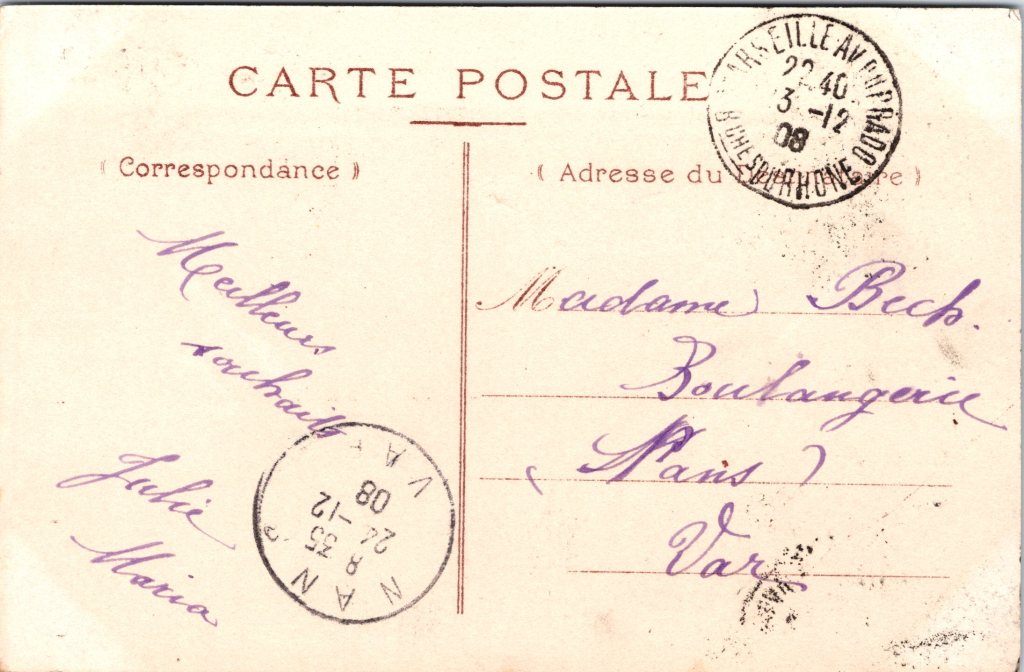 CARTE POSTALE
MARSEILLE AV. DU PRADO
22 40
3 -12
08
BCHES DU RHONE
( Correspondance )
( Adresse du )
Meilleurs
souhaits
Julie
Maria
Madame Bech.
Boulangerie
( Nans )
Var
NANS
8 35
24 -12
08
VAR